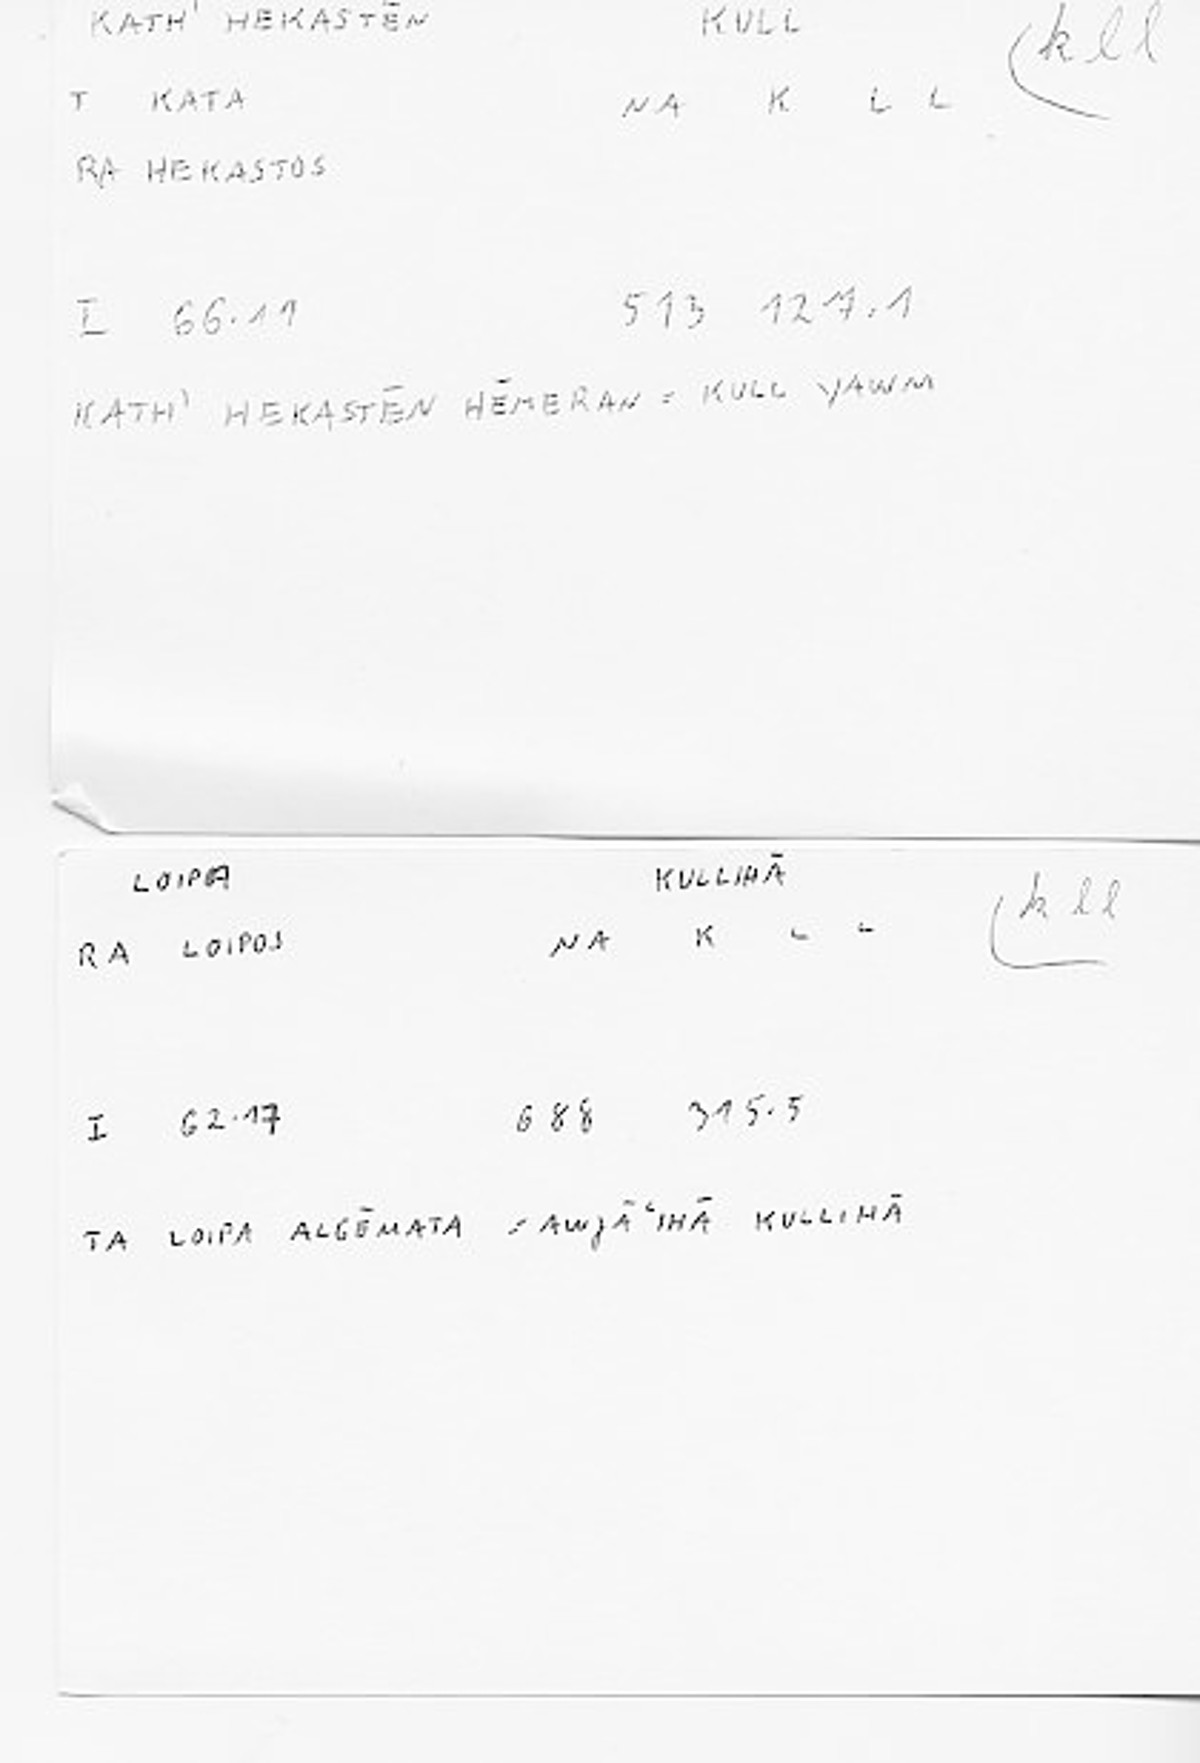 KATH' HEKASTĒN KULL kll
T KATA NA K L L
RA HEKASTOS
I 66.11 513 127.1
KATH' HEKASTĒN HĒMERAN = KULL YAWM
LOIPA KULLIHĀ kll
RA LOIPOS NA K L L
I 62.17 688 315.5
TA LOIPA ALGĒMATA = AWJĀʿIHĀ KULLIHĀ